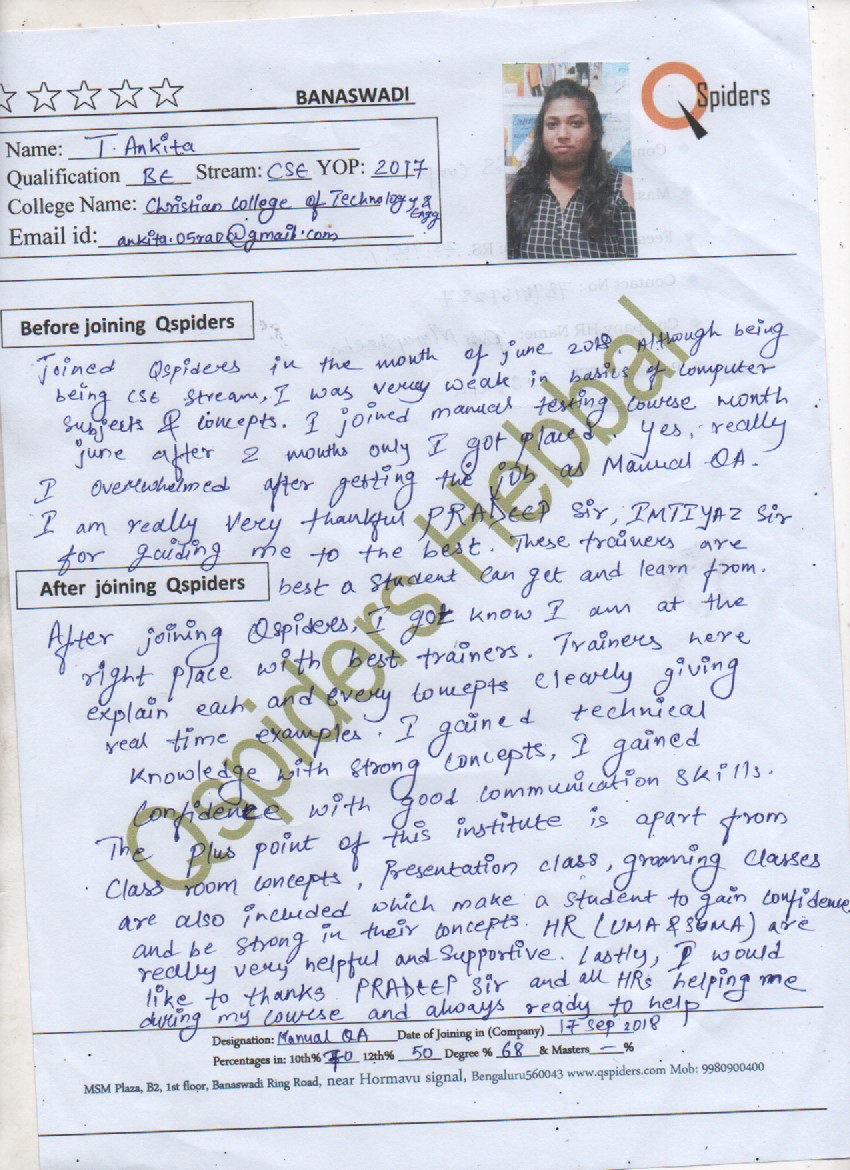 BANASWADI
QSpiders
Name: T. Ankita
Qualification BE Stream: CSE YOP: 2017
College Name: Christian College of Technology & Engg
Email id: ankita.05rao@gmail.com
Before joining Qspiders
Joined Qspiders in the month of june 2018. Although being
being CSE Stream, I was very weak in basics of computer
Subjects & concepts. I joined manual testing course month
june after 2 months only I got placed. Yes, really
I overwhelmed after getting the job as Manual QA.
I am really very thankful PRADEEP Sir, IMTIYAZ Sir
for guiding me to the best. These trainers are
After joining Qspiders best a Student can get and learn from.
After joining Qspiders, I got know I am at the
right place with best trainers. Trainers here
explain each and every concepts clearly giving
real time examples. I gained technical
knowledge with strong concepts, I gained
Confidence with good communication skills.
The plus point of this institute is apart from
Class room concepts, Presentation class, grooming classes
are also included which make a student to gain confidence
and be strong in their concepts. HR (UMA & SUMA) are
really very helpful and Supportive. Lastly, I would
like to thanks PRADEEP Sir and all HRs helping me
during my course and always ready to help
Designation: Manual QA Date of Joining in (Company) 17 Sep 2018
Percentages in: 10th% 70 12th% 50 Degree % 68 & Masters – %
MSM Plaza, B2, 1st floor, Banaswadi Ring Road, near Hormavu signal, Bengaluru560043 www.qspiders.com Mob: 9980900400
Qspiders Hebbal